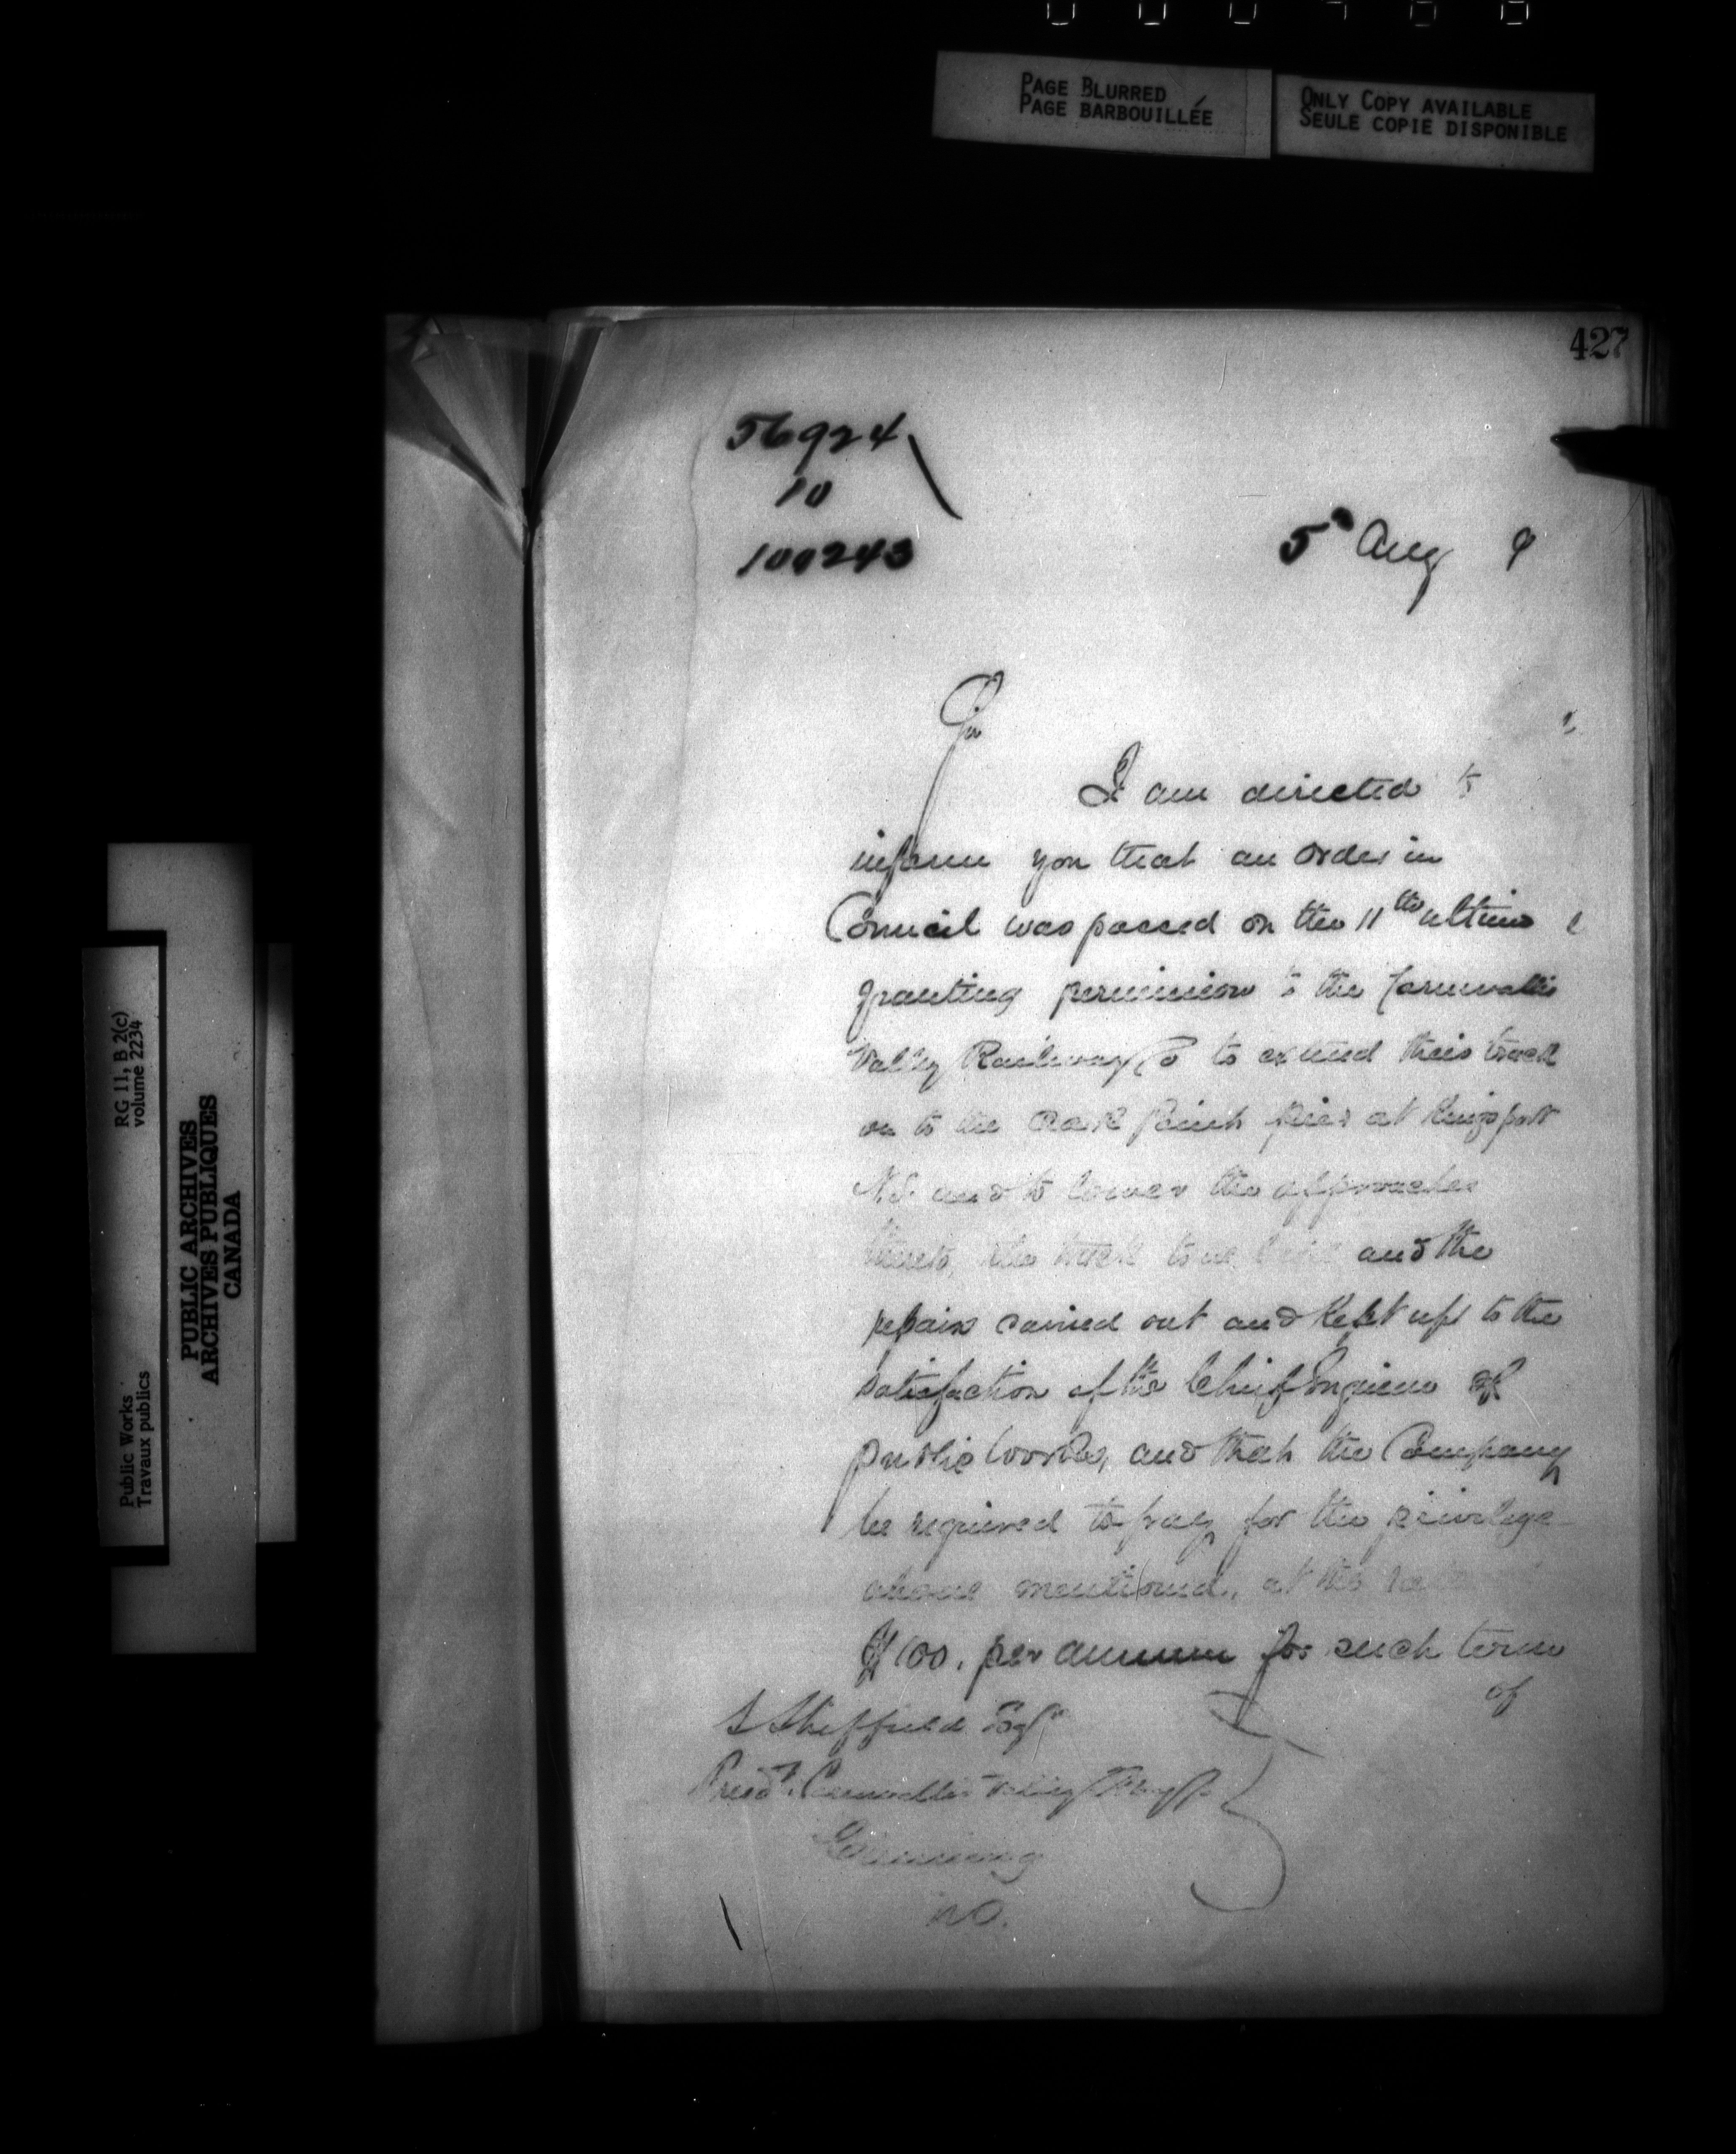 PAGE BLURRED
PAGE BARBOUILLÉE
ONLY COPY AVAILABLE
SEULE COPIE DISPONIBLE
427
56924
10
100243
5 Aug 9
Sir
I am directed to
inform you that an Order in
Council was passed on the 11th ultimo
granting permission to the Cornwallis
Valley Railway Co to extend their track
on to the Oak Point pier at Kingsport
N.S. and to lower the approaches
thereto, the track to be and the
repairs carried out and kept up to the
satisfaction of the Chief Engineer of
public Works, and that the Company
be required to pay for the privilege
above mentioned, at the rate
$100. per annum for such term
of
S Sheffield Esqr
Presdt. Cornwallis Valley Rwy Co
Canning
N.S.
RG 11, B 2(c)
volume 2234
PUBLIC ARCHIVES
ARCHIVES PUBLIQUES
CANADA
Public Works
Travaux publics